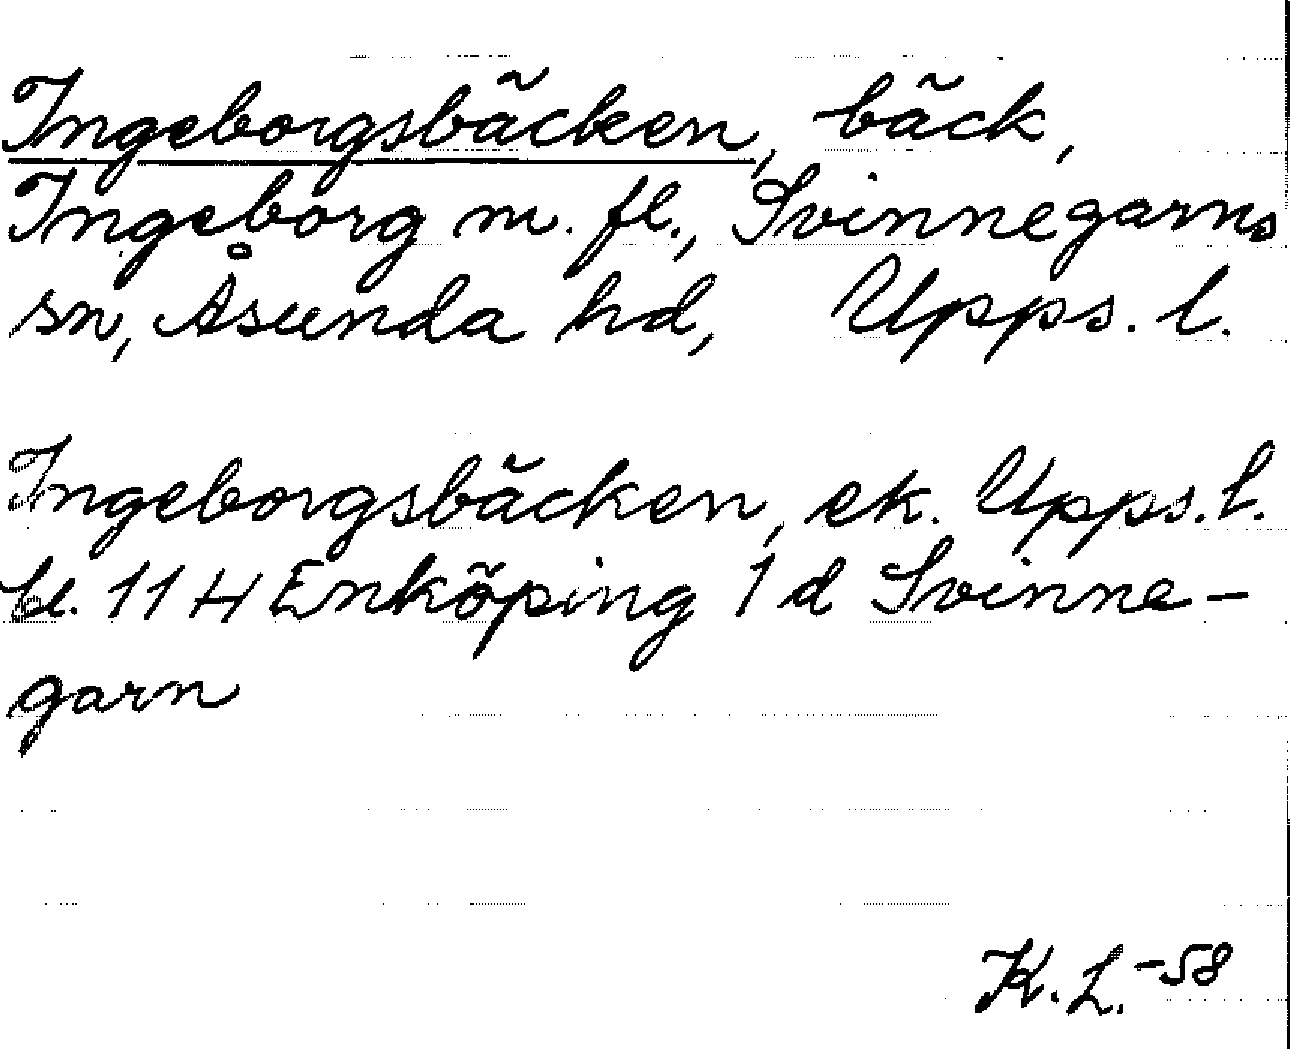 Ingeborgsbäcken, bäck,
Ingeborg m. fl., Svinnegarns
sn, Åsunda hd, Upps. l.
Ingeborgsbäcken, ek. Upps. l.
bl. 11 H Enköping 1 d Svinne-
garn
K. L. -58